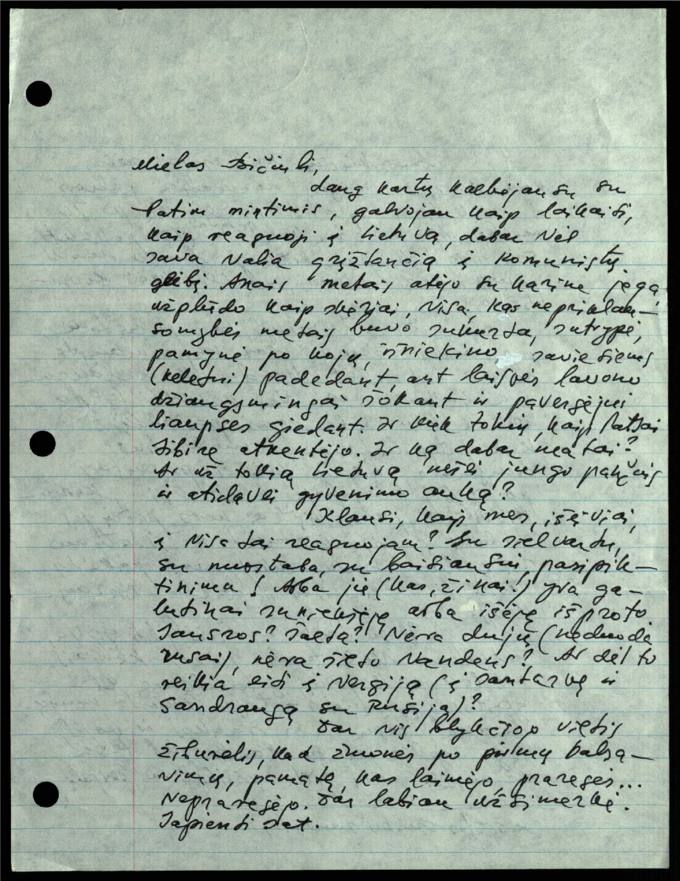 Mielas Bičiuli,
Daug kartų kalbėjausu su
Patim mintimis, galvojau kaip laikaisi,
kaip reaguoji į Lietuvą, dabar vėl
sava valia grįžtančią į komunistų
glėbį. Anais metais atėjo su karine jėga,
užplūdo kaip skėriai, visa, kas nepriklau-
somybės metais buvo sukurta, sutrypė,
pamynė po kojų, išniekino saviesiems
(keletui) padedant, ant laisvės lavono
džiaugsmingai šokant ir pavergėjui
liaupses giedant. Ir kiek tokių, kaip Patsai
Sibire atkentėjo. Ir ką dabar matai?
Ar už tokią Lietuvą nešei jungo pančius
ir atidavei gyvenimo auką?
Klausi, kaip mes, išeiviai,
į visa tai reaguojam? Su sielvartu,
su nuostaba, su baisiausiu pasipik-
tinimu! Arba jie (kas, žinai!) yra ga-
lutinai suniekėję arba išėję iš proto
Jausros? Šalta? Nėra dujų (neduoda
rusai), nėra šilto vandens? Ar dėl to
reikia eiti į vergiją (į santarvę ir
Sandraugą su Rusija)?
Dar vis blykčiojo vilties
žiburėlis, kad žmonės po pirmų balsa-
vimų, pamatę, kas laimėjo praregės...
Nepraregėjo. Dar labiau užsimerkė.
Sapienti sat.